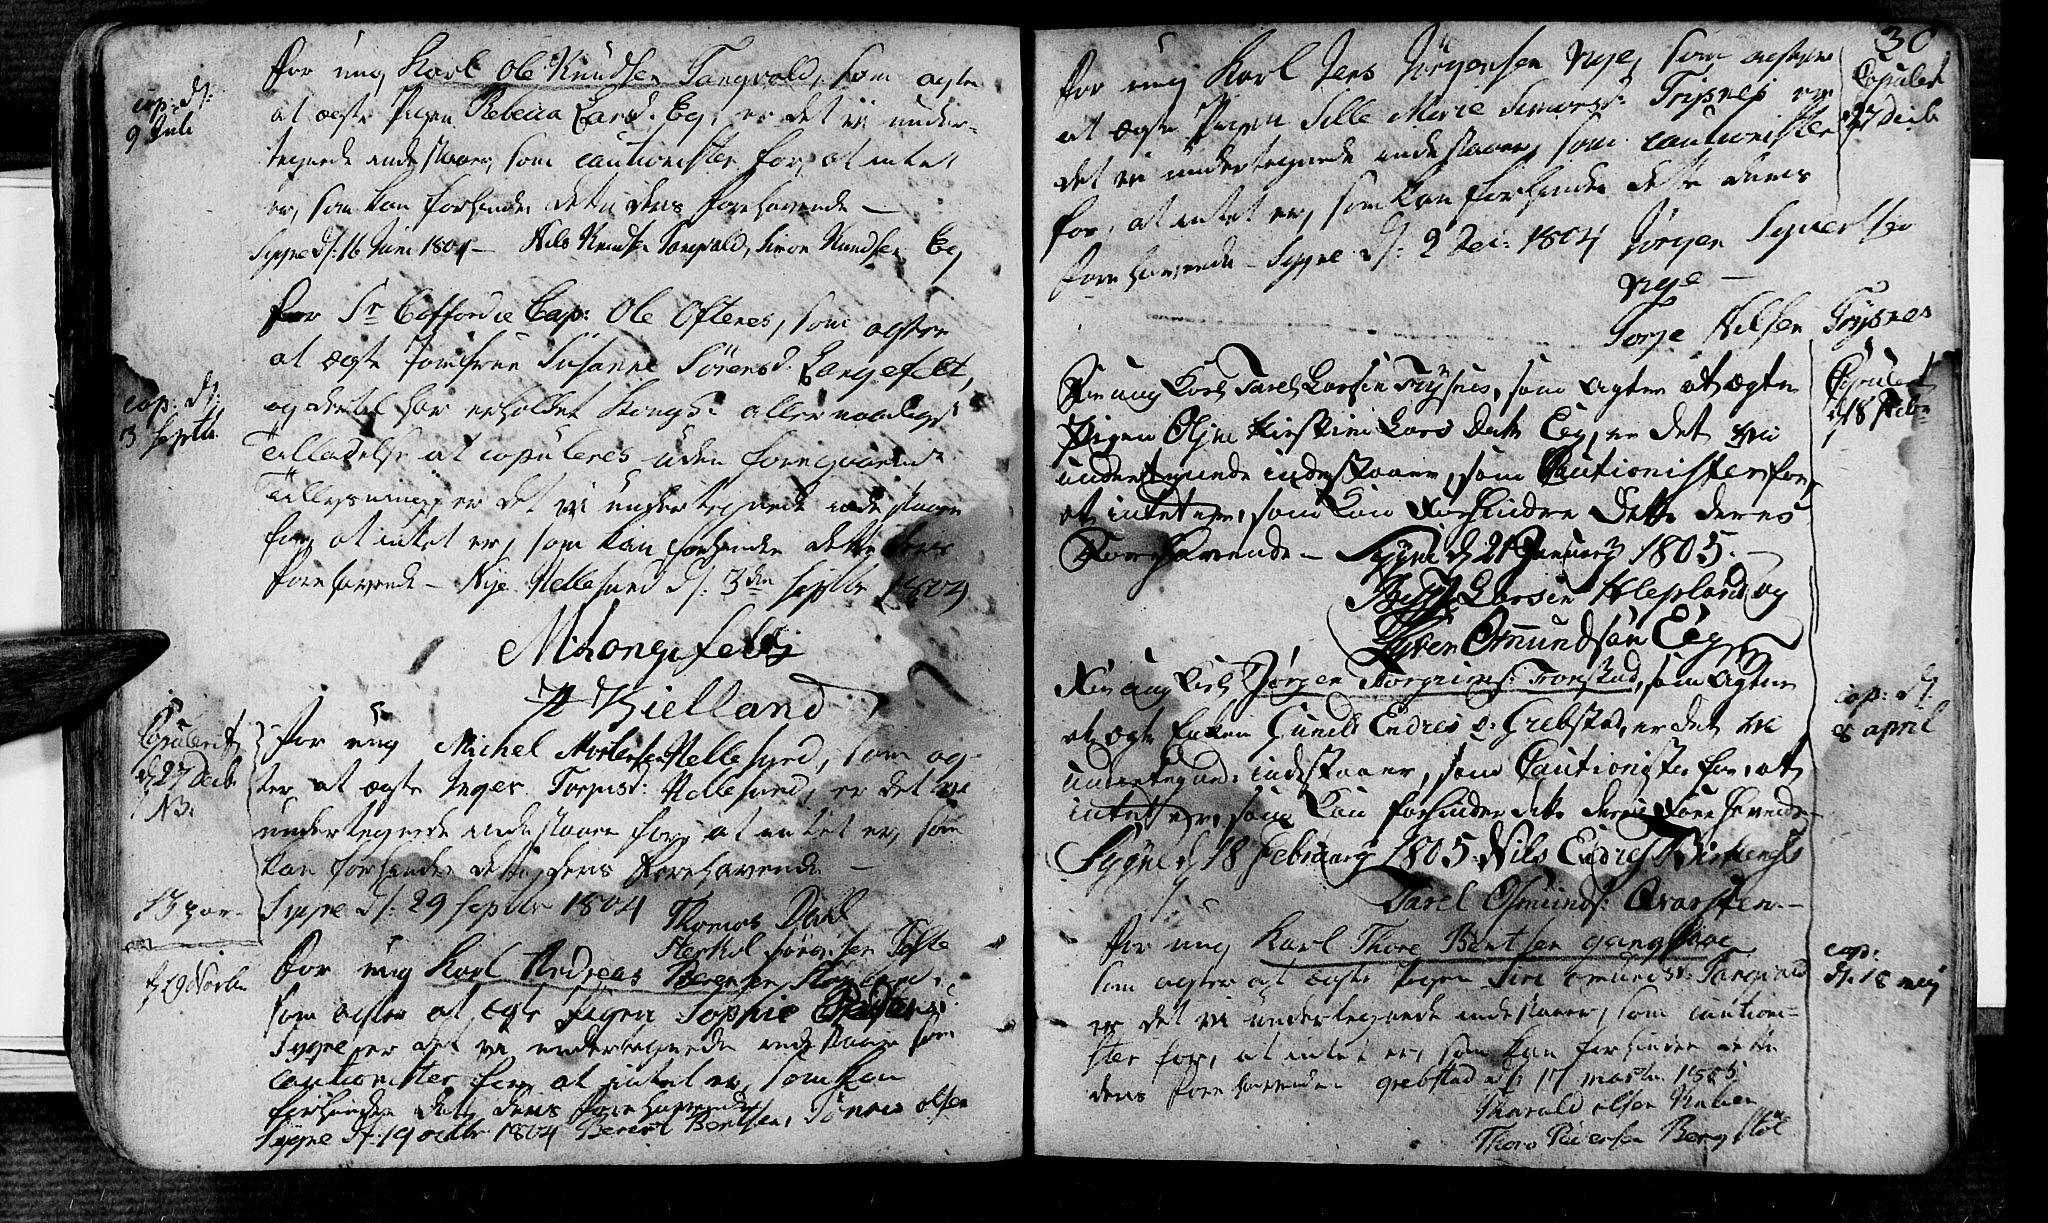 cop: d:
9 Juli
for ung Karl Ole Knudsen Tangvald, som agter
at ægte Pigen Rebecca Larsd. Eg, er det vi under-
tegnede indestaaer, som cautionister for, at intet
er, som kan forhindre dette deres forehavende –
Sygne d: 16 Juni 1804 – Nils Knudsen Tangvald, Simon Knudsen Eg
cop: d:
3 Septbr
For Sr Coffardie Cap: Ole Oftenes, som agter
at ægte Jomfrue Susanne Sörensd. Langefeldt,
og dertil har erholdet Kongl: allernaadigst
Tilladelse at copuleres uden foregaaende
Tillysning, er det vi undertegnede indestaaer
for, at intet er, som kan forhindre dette deres
forehavende – Nye Hellesund d: 3die Septbr 1804
M Langefeldt
A Kielland
Copuleret
d 27 Decb
N3.
for ung Michel Mortensen Hellesund, som ag-
ter at ægte Inger Torgusd: Hellesund, er det vi
undertegnede indestaaer for, at intet er, som
kan forhindre dette deres forehavende –
Sygne d: 29 Septbr 1804 Thomas Dahl
Sörensen Tofte
d 19 Novbr
for ung Karl Andreas Berentsen
som agter at ægte Pigen Sophie
Sygne, er det vi undertegnede indestaaer som
cautionister for, at intet er, som kan
forhindre dette deres forehavende
Sygne d: 19 octbr 1804 Berent Bentsen, Tönnes Olsen
30
for ung Karl Jens Jörgensen Nye, som agter
Copulert
27 Decb
at ægte Pigen Sille Marie Simonsd: Trysnes er
det vi undertegnede indestaaer, som cautionister
for, at intet er, som kan forhindre dette deres
forehavende – Sygne d: 2 Dec: 1804 Jörgen Syvertsen
Nye –
Torje Nilsen Trysnes
Copulert
d 18 Febr
For ung Karl Tarel Larsen Trysnes, som agter at ægte
Pigen Olene Kirstine Lars Datter Eeg, er det vi
undertegnede indestaaer, som Cautionister for,
at intet er, som kan forhindre dette deres
Forehavende – Sygne d 21 January 1805. –
Larsen Klepland og
Syver Omundsön Eeg
cop: d:
8 april
For ung Karl Jörgen Torgrims: Tronstad, som agter
at ægte Enken Gunild Endres d: Grebstad, er det vi
undertegned: indestaaer, som Cautionister for, at
intet er, som kan forhindre dette deres Forehavende
Sygne d 18 February 1805. Nils Endres Birkenes
Tarel Osmunds: Qvarsten –
cop:
d: 18 maj
for ung Karl Thore Bentsen
som agter at ægte Pigen Siri Omundsd: Tangvald
er det vi undertegnede indestaaer, som caution-
ster for, at intet er, som kan forhindre dette
deres forehavende. Grebstad d: 17 martii 1805
Tharald Olsen
Thore Pedersen Bergstöl